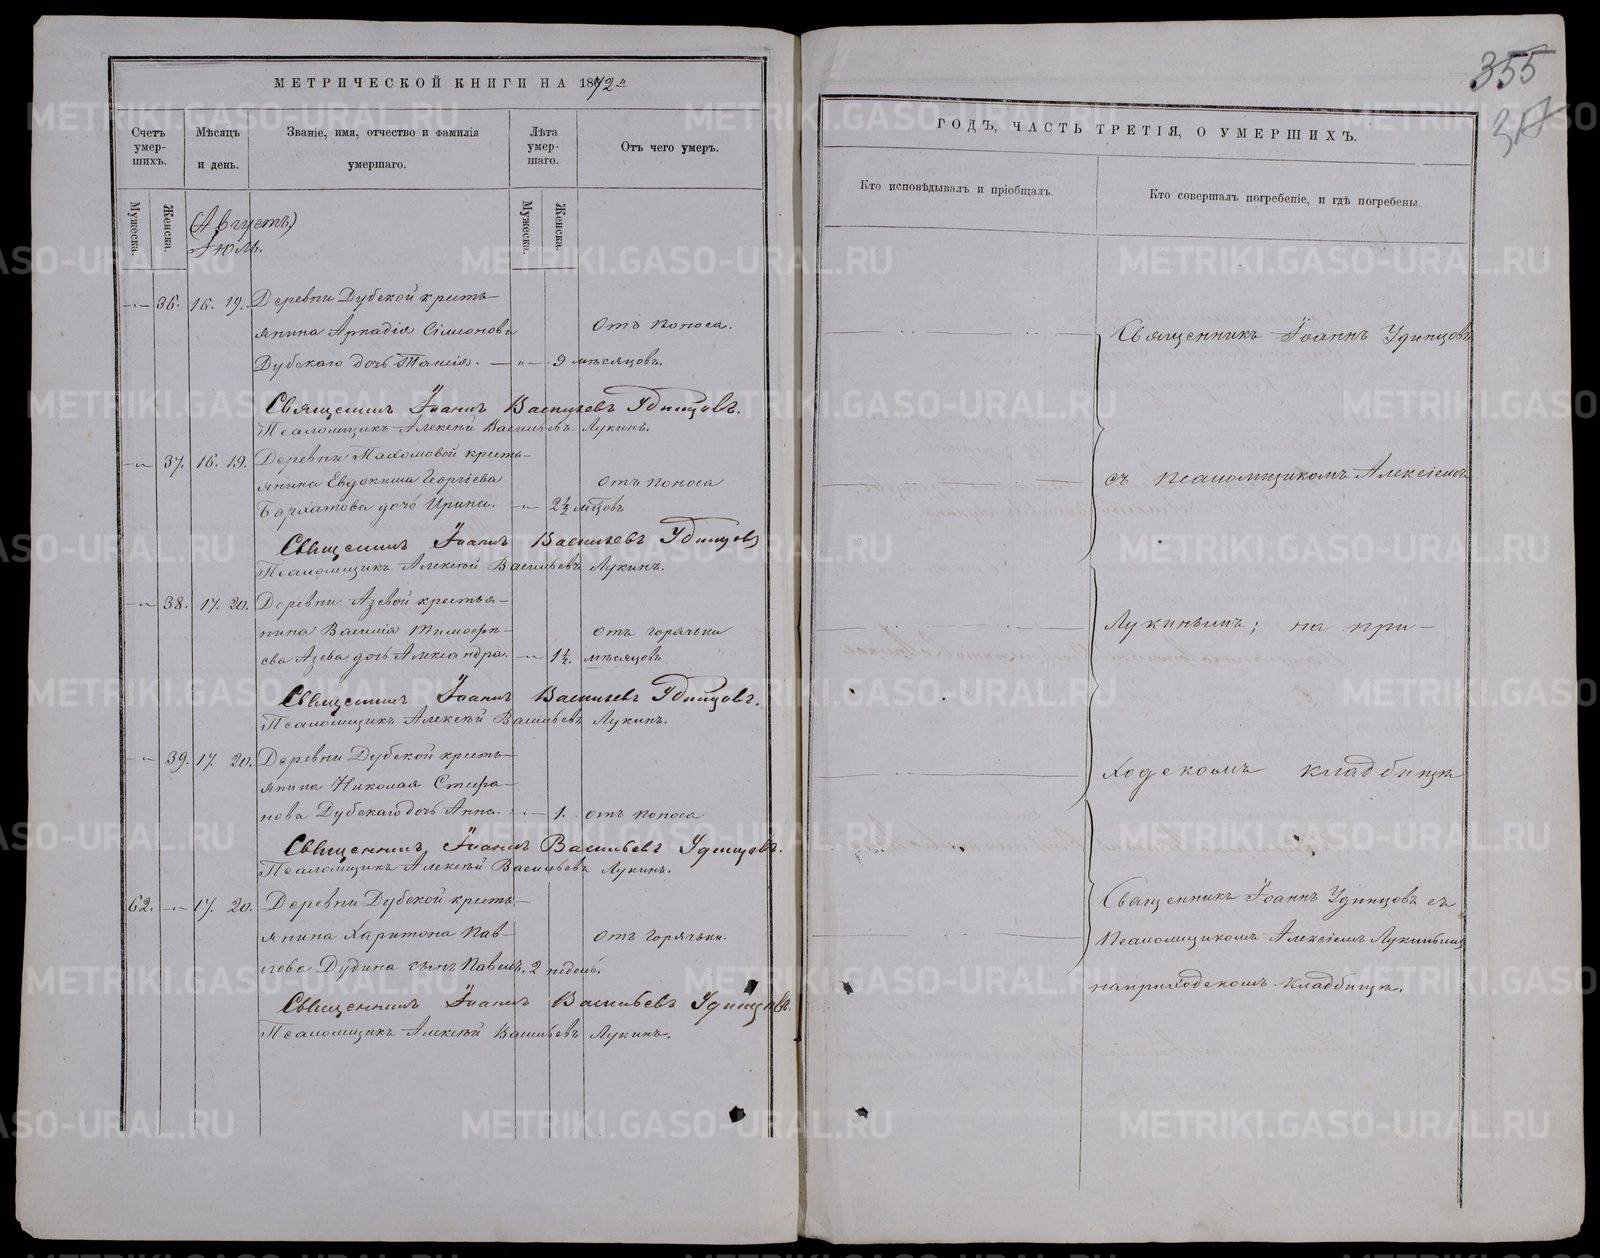 МЕТРИЧЕСКОЙ КНИГИ НА 1872й
Счетъ умер-шихъ.
Мѣсяцъ и день.
Званіе, имя, отчество и фамилія умершаго.
Лѣта умер-шаго.
Отъ чего умеръ.
Мужеска.
Женска.
Мужеска.
Женска.
(Августъ)
Іюль.
36. 16. 19. Деревни Дубской кресть-
янина Аркадія Сімонова Отъ поноса.
Дубскаго дочь Таисія. — „ — 9 мѣсяцовъ.
Священникъ Іоаннъ Васильевъ Удинцовъ.
Псаломщикъ Алексѣй Васильевъ Лукинъ.
37. 16. 19. Деревни Пахомовой кресть-
янина Евдокима Георгіева отъ поноса
Бархатова дочь Ирина. — „ — 2½ мѣцовъ
Священникъ Іоаннъ Васильевъ Удинцовъ
Псаломщикъ Алексѣй Васильевъ Лукинъ.
38. 17. 20. Деревни Азевой крестья-
нина Василія Тимофѣ- отъ горячьки
ева Азева дочь Александра. — „ — 1½. мѣсяцовъ
Священникъ Іоаннъ Васильевъ Удинцовъ.
Псаломщикъ Алексѣй Васильевъ Лукинъ.
39. 17. 20. Деревни Дубской кресть-
янина Николая Стефа-
нова Дубскаго дочь Анна. — „ — 1. отъ поноса
Священникъ Іоаннъ Васильевъ Удинцовъ.
Псаломщикъ Алексѣй Васильевъ Лукинъ.
62. — „ — 17. 20. Деревни Дубской кресть-
янина Харитона Пав- отъ горячьки.
лова Дудина сынъ Павелъ. 2 недѣль.
Священникъ Іоаннъ Васильевъ Удинцовъ.
Псаломщикъ Алексѣй Васильевъ Лукинъ.
355
ГОДЪ, ЧАСТЬ ТРЕТІЯ, О УМЕРШИХЪ.
Кто исповѣдывалъ и пріобщалъ.
Кто совершалъ погребеніе, и гдѣ погребены.
Священникъ Іоаннъ Удинцовъ
съ псаломщикомъ Алексіемъ
Лукинымъ; на при-
ходскомъ кладбищѣ
Священникъ Іоаннъ Удинцовъ съ
псаломщикомъ Алексіемъ Лукинымъ
на приходскомъ кладбищѣ.
METRIKI.GASO-URAL.RU